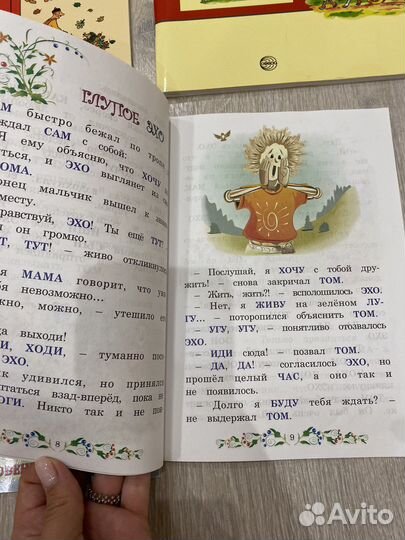 ГЛУПОЕ ЭХО
быстро бежал по
ждал САМ с собой:
Я ему объясню, что ХОЧУ
ться, и ЭХО выглянет из
ДОМА.
онец мальчик вышел к
месту.
равствуй, ЭХО! Ты ещё ТУТ!
он громко.
ТУТ! — живо откликнулось
я МАМА говорит, что
бя невозможно...
ожно, можно, — утешило его
да выходи!
ДИ, ХОДИ, — туманно
ЭХО.
удивился, но принялся
таться взад-вперёд, пока не
НОГИ. Никто так и не
8
— Послушай, я ХОЧУ с тобой дру-
жить! — снова закричал ТОМ.
— Жить, жить?! — всполошилось ЭХО.
— Нет, я ЖИВУ на зелёном ЛУ-
ГУ... — поторопился объяснить ТОМ.
— УГУ, УГУ, — понятливо отозвалось
ЭХО.
— ИДИ сюда! — позвал ТОМ.
— ДА, ДА! — согласилось ЭХО, но
прошёл целый ЧАС, а оно так и
не появилось.
— Долго я БУДУ тебя ждать? —
не выдержал ТОМ.
9
Avito